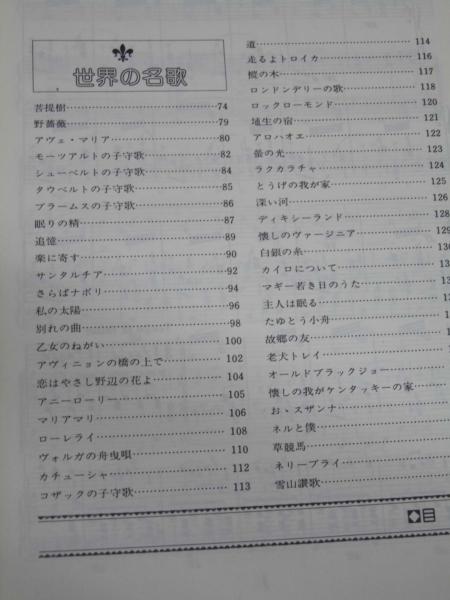 世界の名歌
菩提樹……74
野薔薇……79
アヴェ・マリア……80
モーツアルトの子守歌……82
シューベルトの子守歌……84
タウベルトの子守歌……85
ブラームスの子守歌……86
眠りの精……87
追憶……89
楽に寄す……90
サンタルチア……92
さらばナポリ……94
私の太陽……96
別れの曲……98
乙女のねがい……100
アヴィニョンの橋の上で……102
恋はやさし野辺の花よ……104
アニーローリー……105
マリアマリ……106
ローレライ……108
ヴォルガの舟曳唄……110
カチューシャ……112
コザックの子守歌……113
道……114
走るよトロイカ……116
樅の木……117
ロンドンデリーの歌……118
ロックローモンド……120
埴生の宿……121
アロハオエ……122
螢の光……123
ラクカラチャ……124
とうげの我が家……125
深い河……126
ディキシーランド……128
懐しのヴァージニア……129
白銀の糸……130
カイロについて……13
マギー若き日のうた……13
主人は眠る……13
たゆとう小舟……13
故郷の友……
老犬トレイ……
オールドブラックジョー……
懐しの我がケンタッキーの家……
お、スザンナ……
ネルと僕……
草競馬……
ネリーブライ……
雪山讃歌……
目